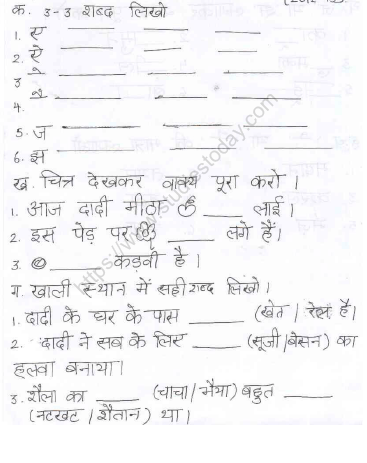 क. ३-३ शब्द लिखो
1. ए ____ ____ ____
2. ऐ ____ ____ ____
3 े ____ ____ ____
4. ै ____ ____ ____
5. ज ____ ____ ____
6. झ ____ ____ ____
ख. चित्र देखकर वाक्य पूरा करो।
1. आज दादी मीठा ____ लाई।
2. इस पेड़ पर ____ लगे हैं।
3. ____ कड़वी है।
ग. खाली स्थान में सही शब्द लिखो।
1. दादी के घर के पास ____ (खेत / रेल है।
2. दादी ने सब के लिए ____ (सूजी/बेसन) का
हलवा बनाया।
3. शैला का ____ (चाचा/भैया) बहुत ____
(नटखट / शैतान) था।
https://www.studiestoday.com